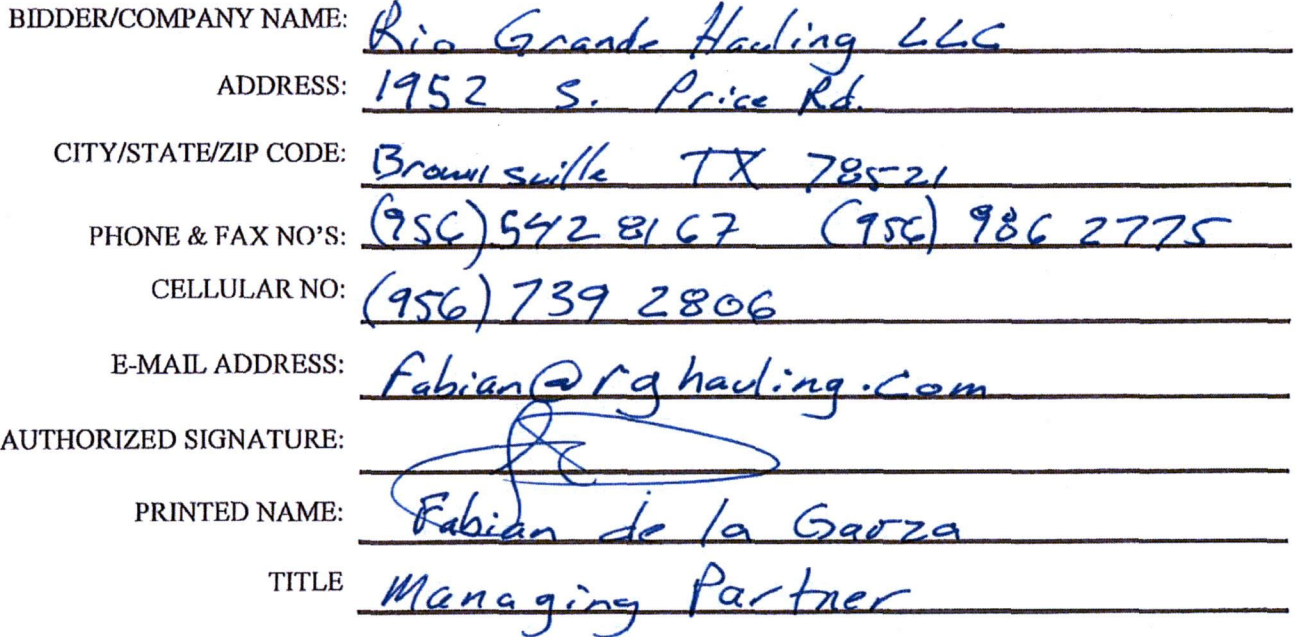 BIDDER/COMPANY NAME: Rio Grande Hauling LLC
ADDRESS: 1952 S. Price Rd.
CITY/STATE/ZIP CODE: Brownsville TX 78521
PHONE & FAX NO'S: (956) 542 8167 (956) 986 2775
CELLULAR NO: (956) 739 2806
E-MAIL ADDRESS: fabian@rghauling.com
AUTHORIZED SIGNATURE:
PRINTED NAME: Fabian de la Garza
TITLE Managing Partner